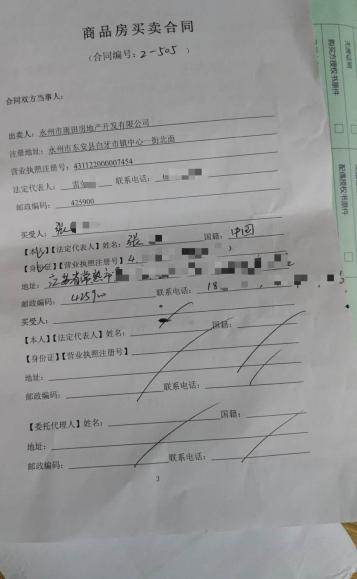 商品房买卖合同
（合同编号：2-505）
合同双方当事人：
出卖人：永州市南田房地产开发有限公司
注册地址：永州市东安县白牙市镇中心一街北面
营业执照注册号：431122000007454
法定代表人：雷 联系电话：
邮政编码：425900
买受人：张
【本人】【法定代表人】姓名：张 国籍：中国
【身份证】【营业执照注册号】4
地址：江苏省常熟市
邮政编码：425900 联系电话：18
买受人：
【本人】【法定代表人】姓名： 国籍：
【身份证】【营业执照注册号】
地址：
邮政编码： 联系电话：
【委托代理人】姓名： 国籍：
地址：
邮政编码： 联系电话：
3
购买方授权书原件
配偶授权书原件